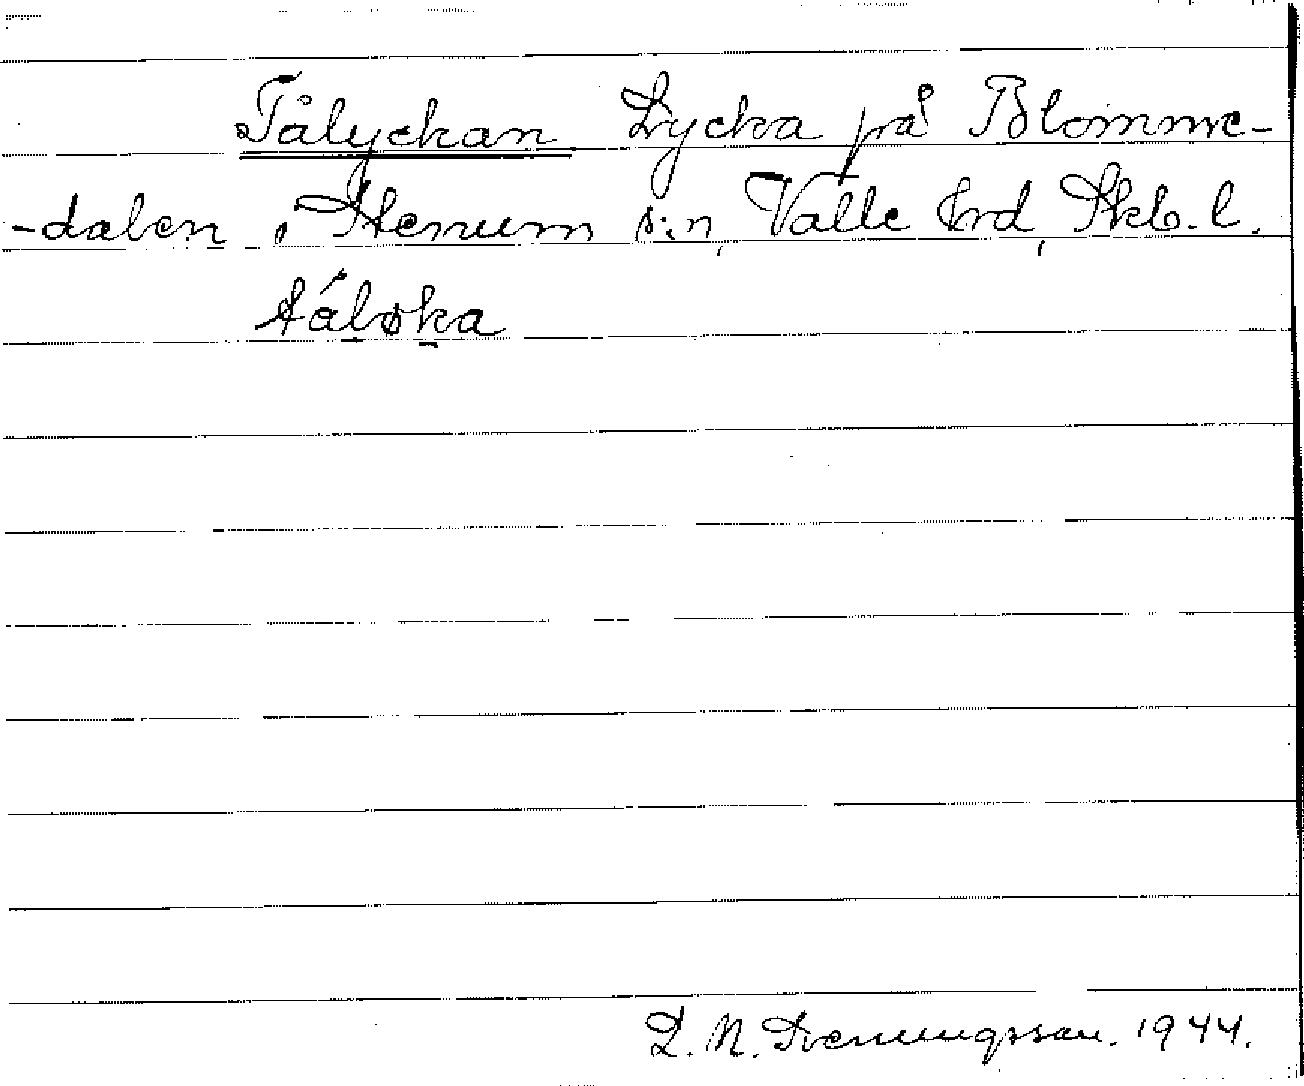 Tålyckan Lycka på Blomme-
-dalen i Stenum s:n, Valle hrd, Skb. l.
tåløka
L. N. Svenungsson. 1944.